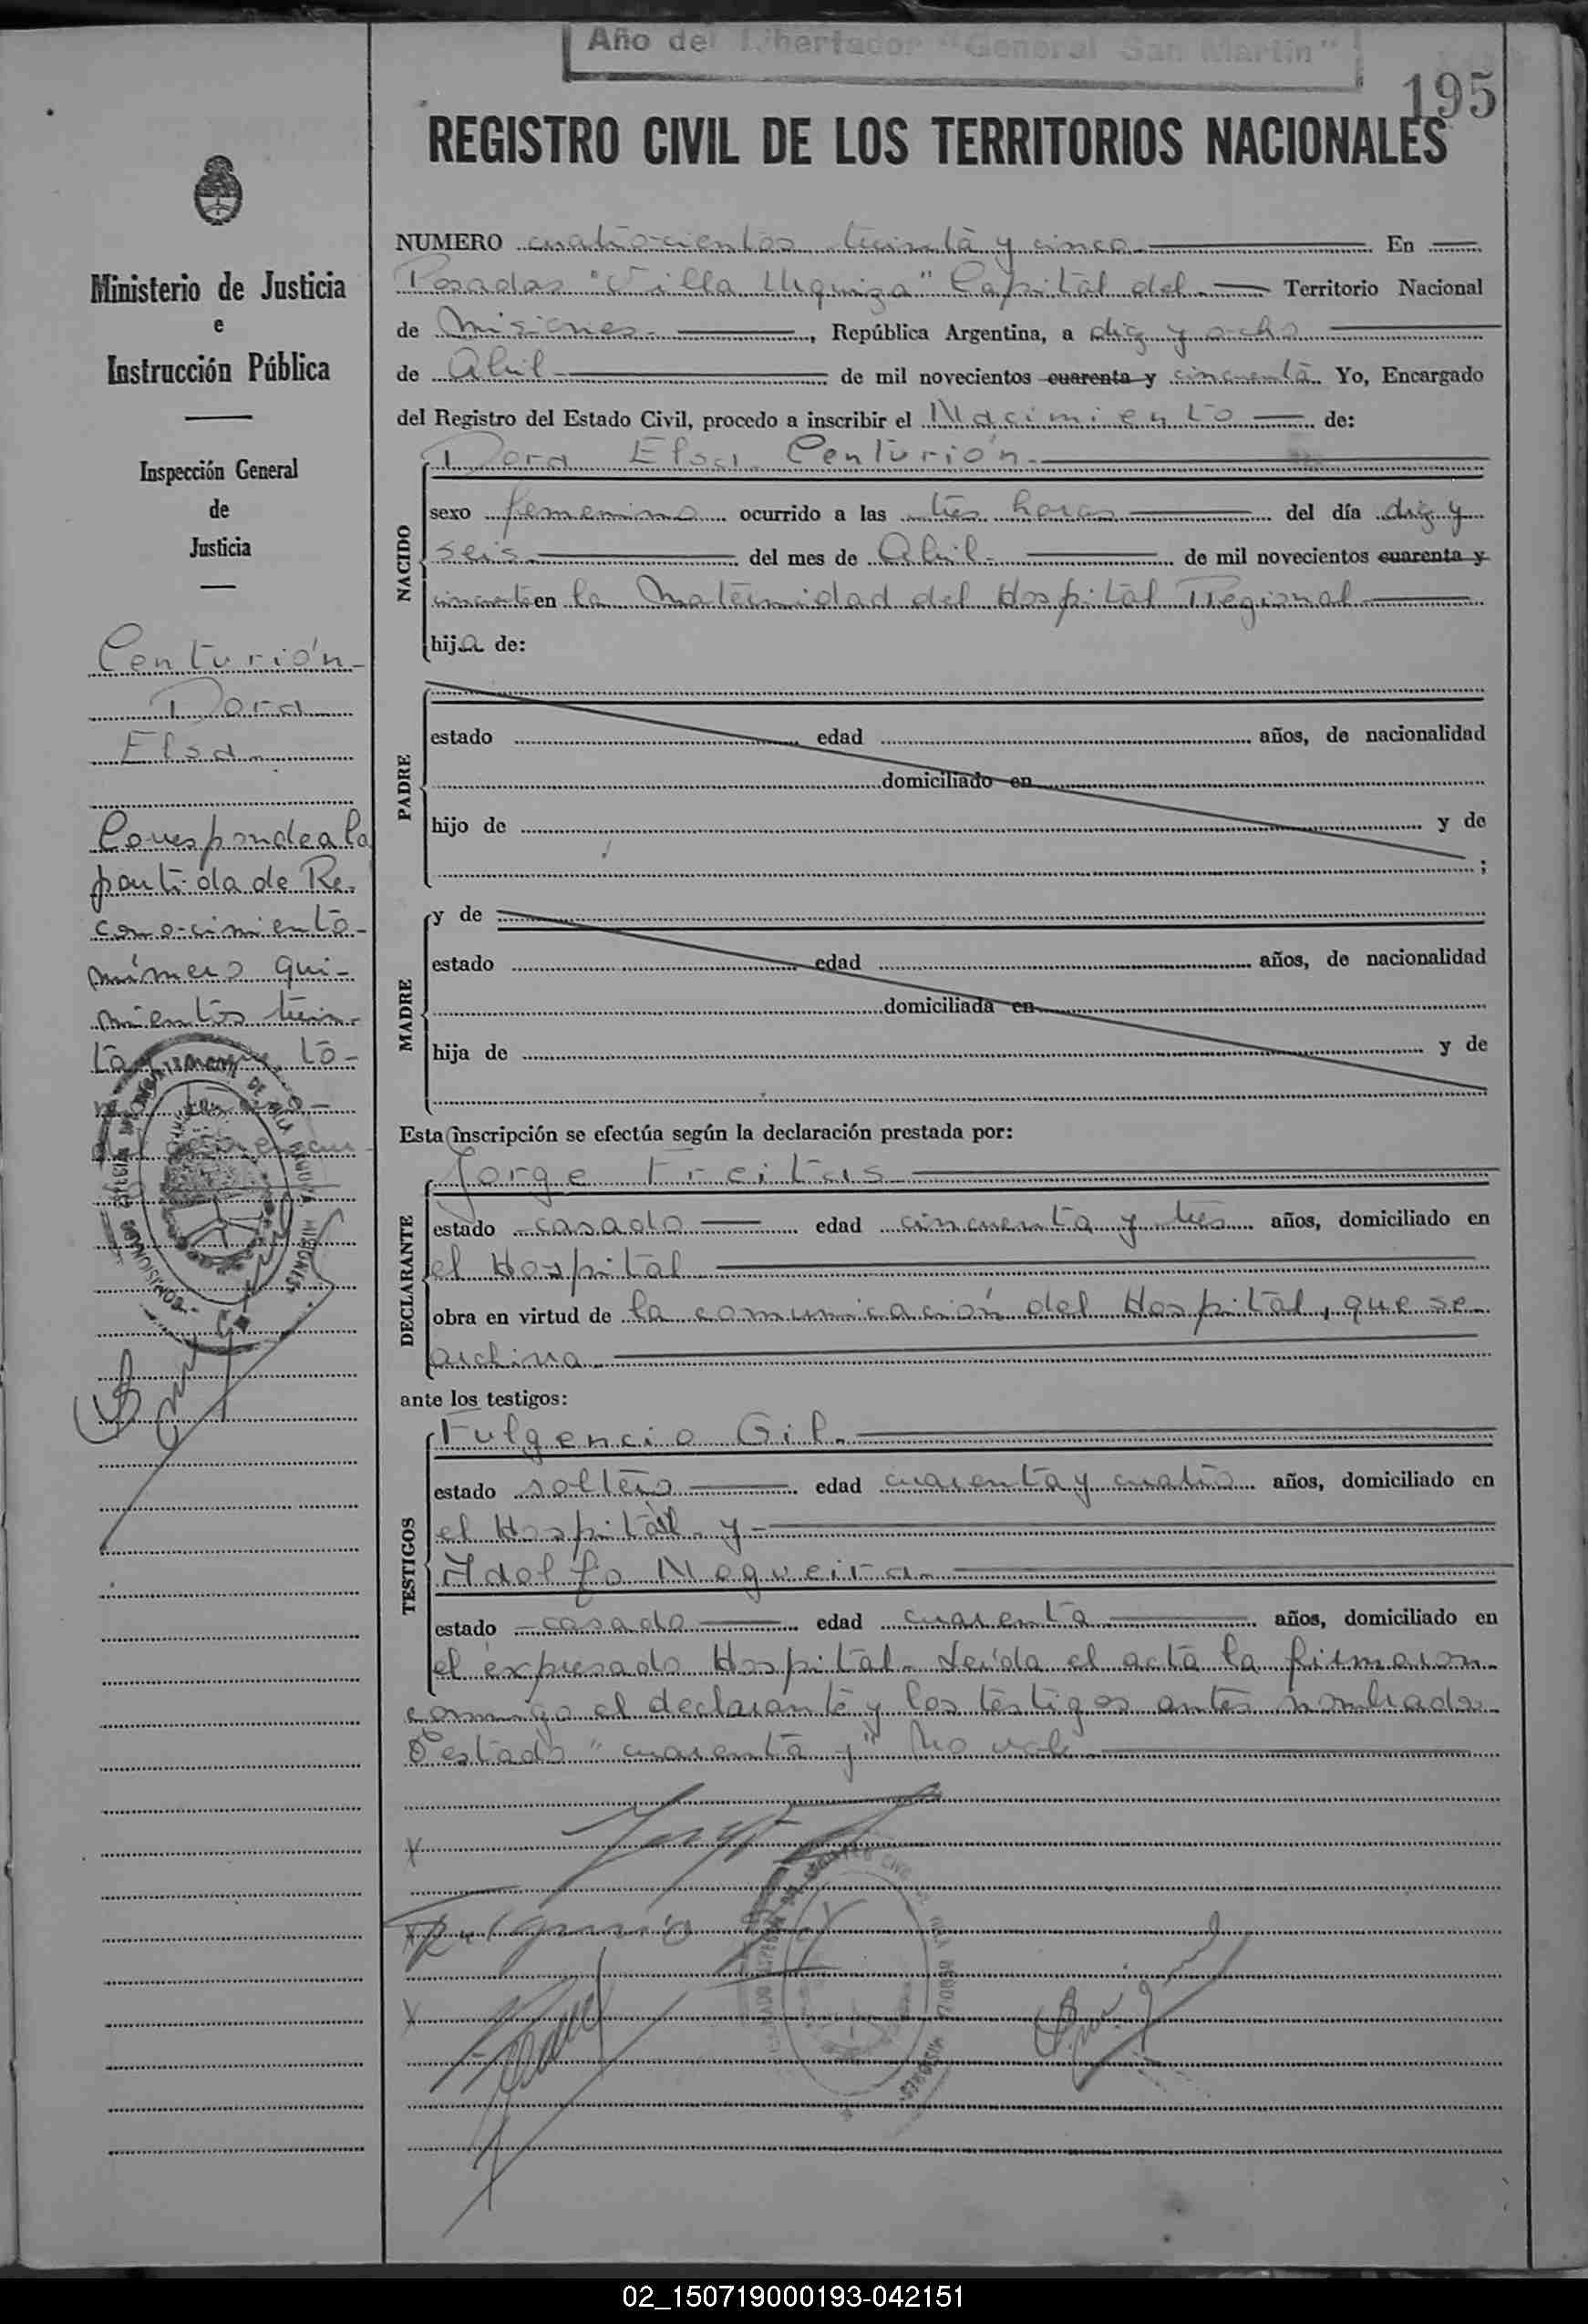 Año del Libertador "General San Martin"
195
REGISTRO CIVIL DE LOS TERRITORIOS NACIONALES
Ministerio de Justicia
e
Instrucción Pública
Inspección General
de
Justicia
Centurión
Dora
Elsa
Corresponde a la
partida de Re-
conocimiento
número qui-
nientos trein-
ta to-
mo
NUMERO cuatrocientos treinta y cinco En
Posadas "Villa Urquiza" Capital del Territorio Nacional
de Misiones, República Argentina, a diez y ocho
de Abril de mil novecientos cuarenta y cincuenta Yo, Encargado
del Registro del Estado Civil, procedo a inscribir el Nacimiento de:
NACIDO
Dora Elsa Centurión
sexo femenino ocurrido a las tres horas del día diez y
seis del mes de Abril de mil novecientos cuarenta y
cincuenta en la Maternidad del Hospital Regional
hija de:
PADRE
estado edad años, de nacionalidad
domiciliado en
hijo de y de
;
MADRE
y de
estado edad años, de nacionalidad
domiciliada en
hija de y de
Esta inscripción se efectúa según la declaración prestada por:
DECLARANTE
Jorge Freitas
estado casado edad cincuenta y tres años, domiciliado en
el Hospital
obra en virtud de la comunicación del Hospital, que se
archiva
ante los testigos:
TESTIGOS
Fulgencio Gil
estado soltero edad cuarenta y cuatro años, domiciliado en
el Hospital y
Adolfo Nogueira
estado casado edad cuarenta años, domiciliado en
el expresado Hospital. Leída el acta la firmaron
conmigo el declarante y los testigos antes nombrados
Testado "cuarenta y" No vale
Fulgencio
02_150719000193-042151